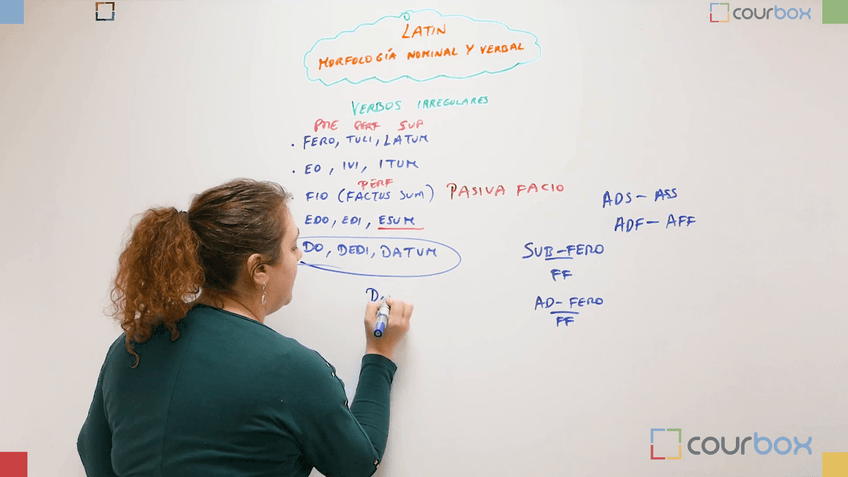 courbox
LATIN
MORFOLOGÍA NOMINAL Y VERBAL
VERBOS IRREGULARES
PRE PERF SUP
. FERO, TULI, LATUM
. EO, IVI, ITUM
PERF
. FIO (FACTUS SUM) PASIVA FACIO
EDO, EDI, ESUM
DO, DEDI, DATUM
D
ADS - ASS
ADF - AFF
SUB-FERO
FF
AD-FERO
FF
courbox